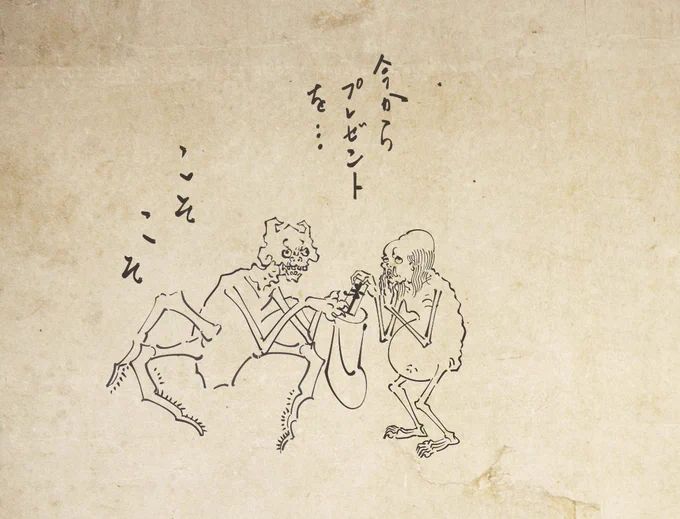 今から
プレゼント
を…
こそ
こそ